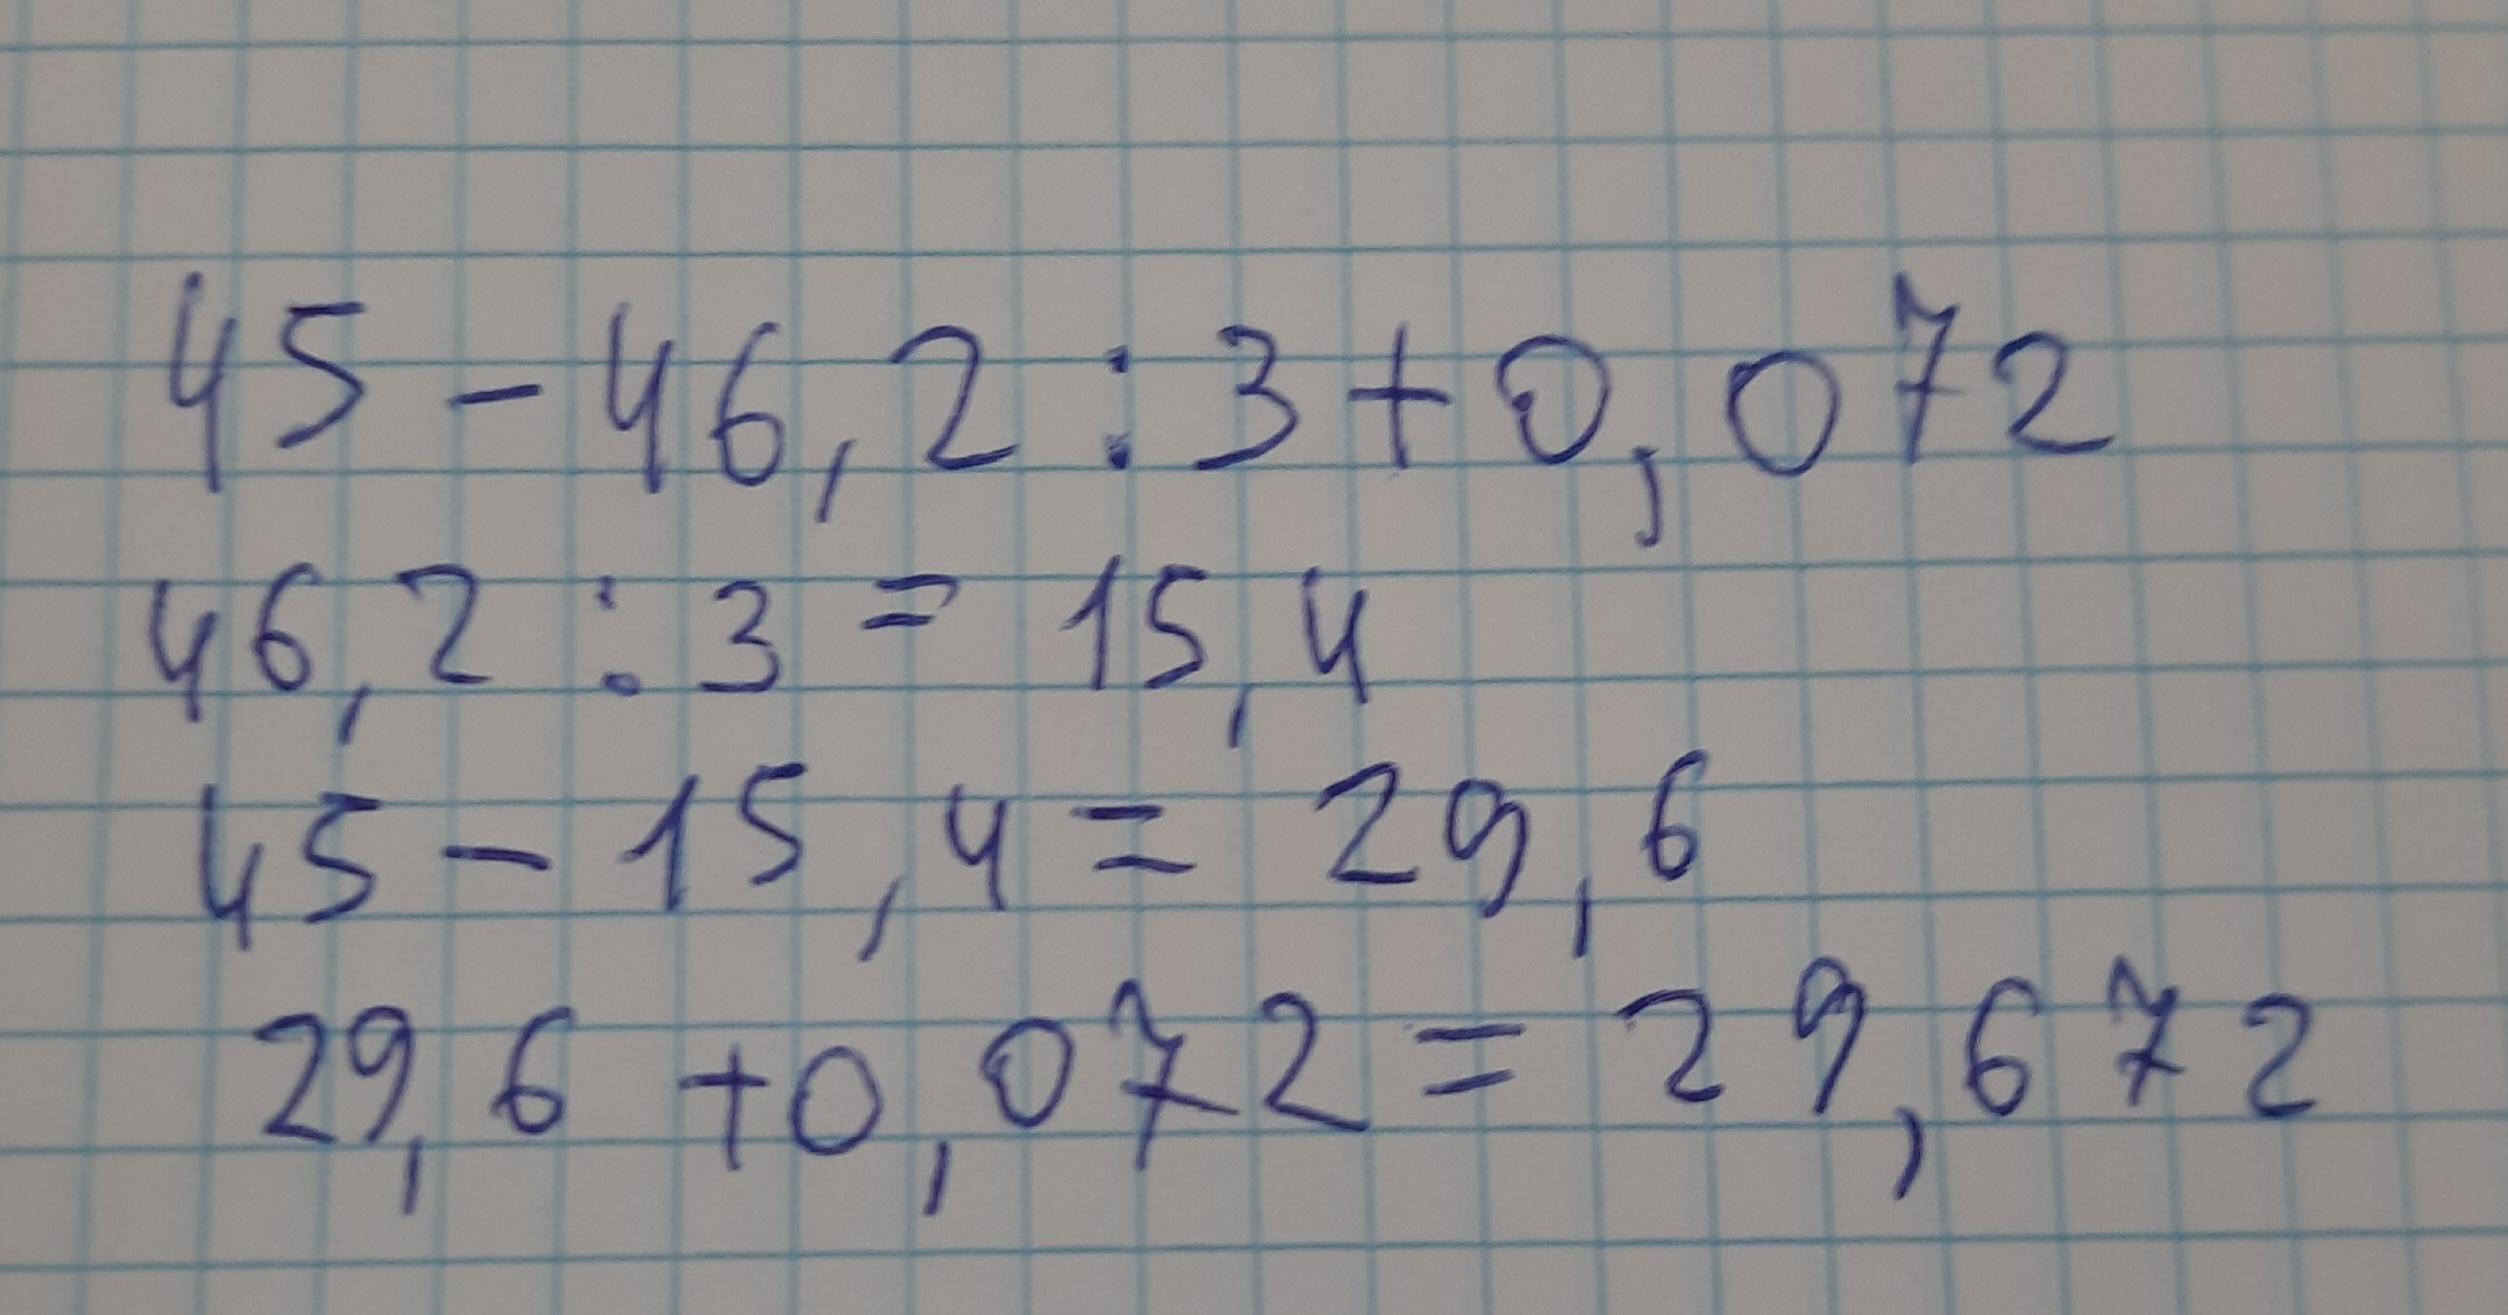 45 - 46,2 : 3 + 0,072
46,2 : 3 = 15,4
45 - 15,4 = 29,6
29,6 + 0,072 = 29,672